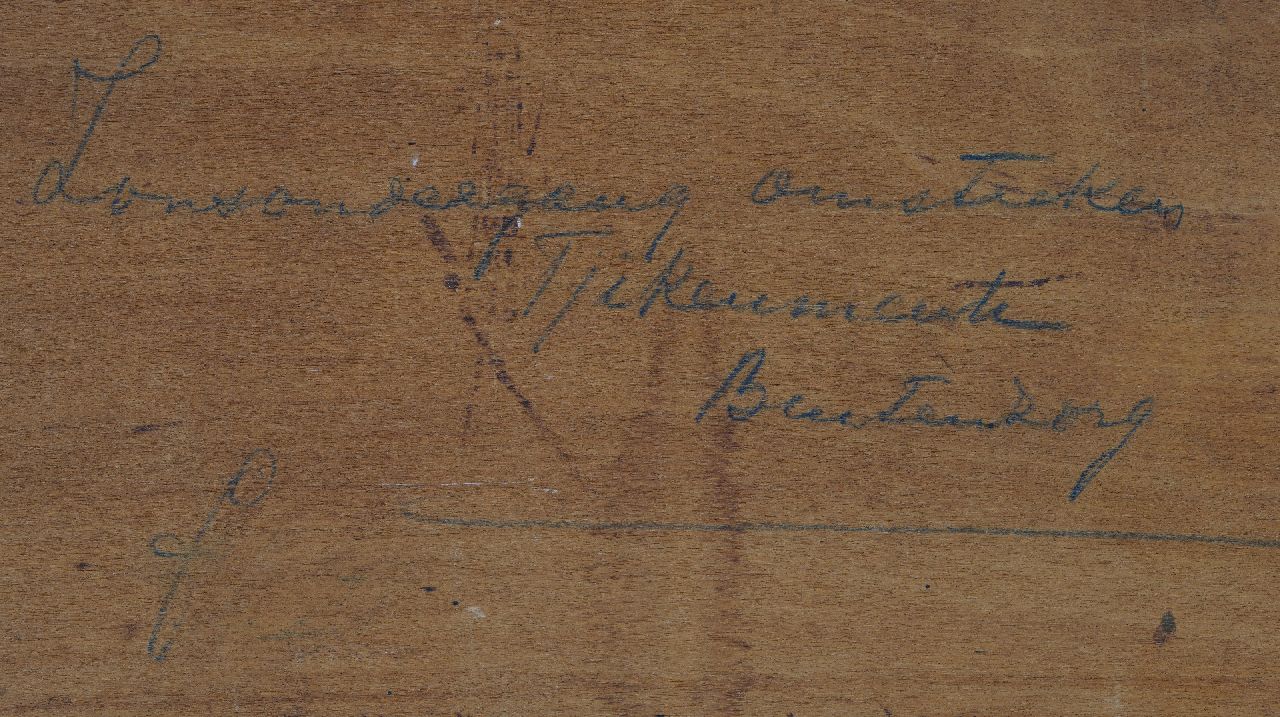 Zonsondergang omstreken
Tjikeumeuh
Buitenzorg